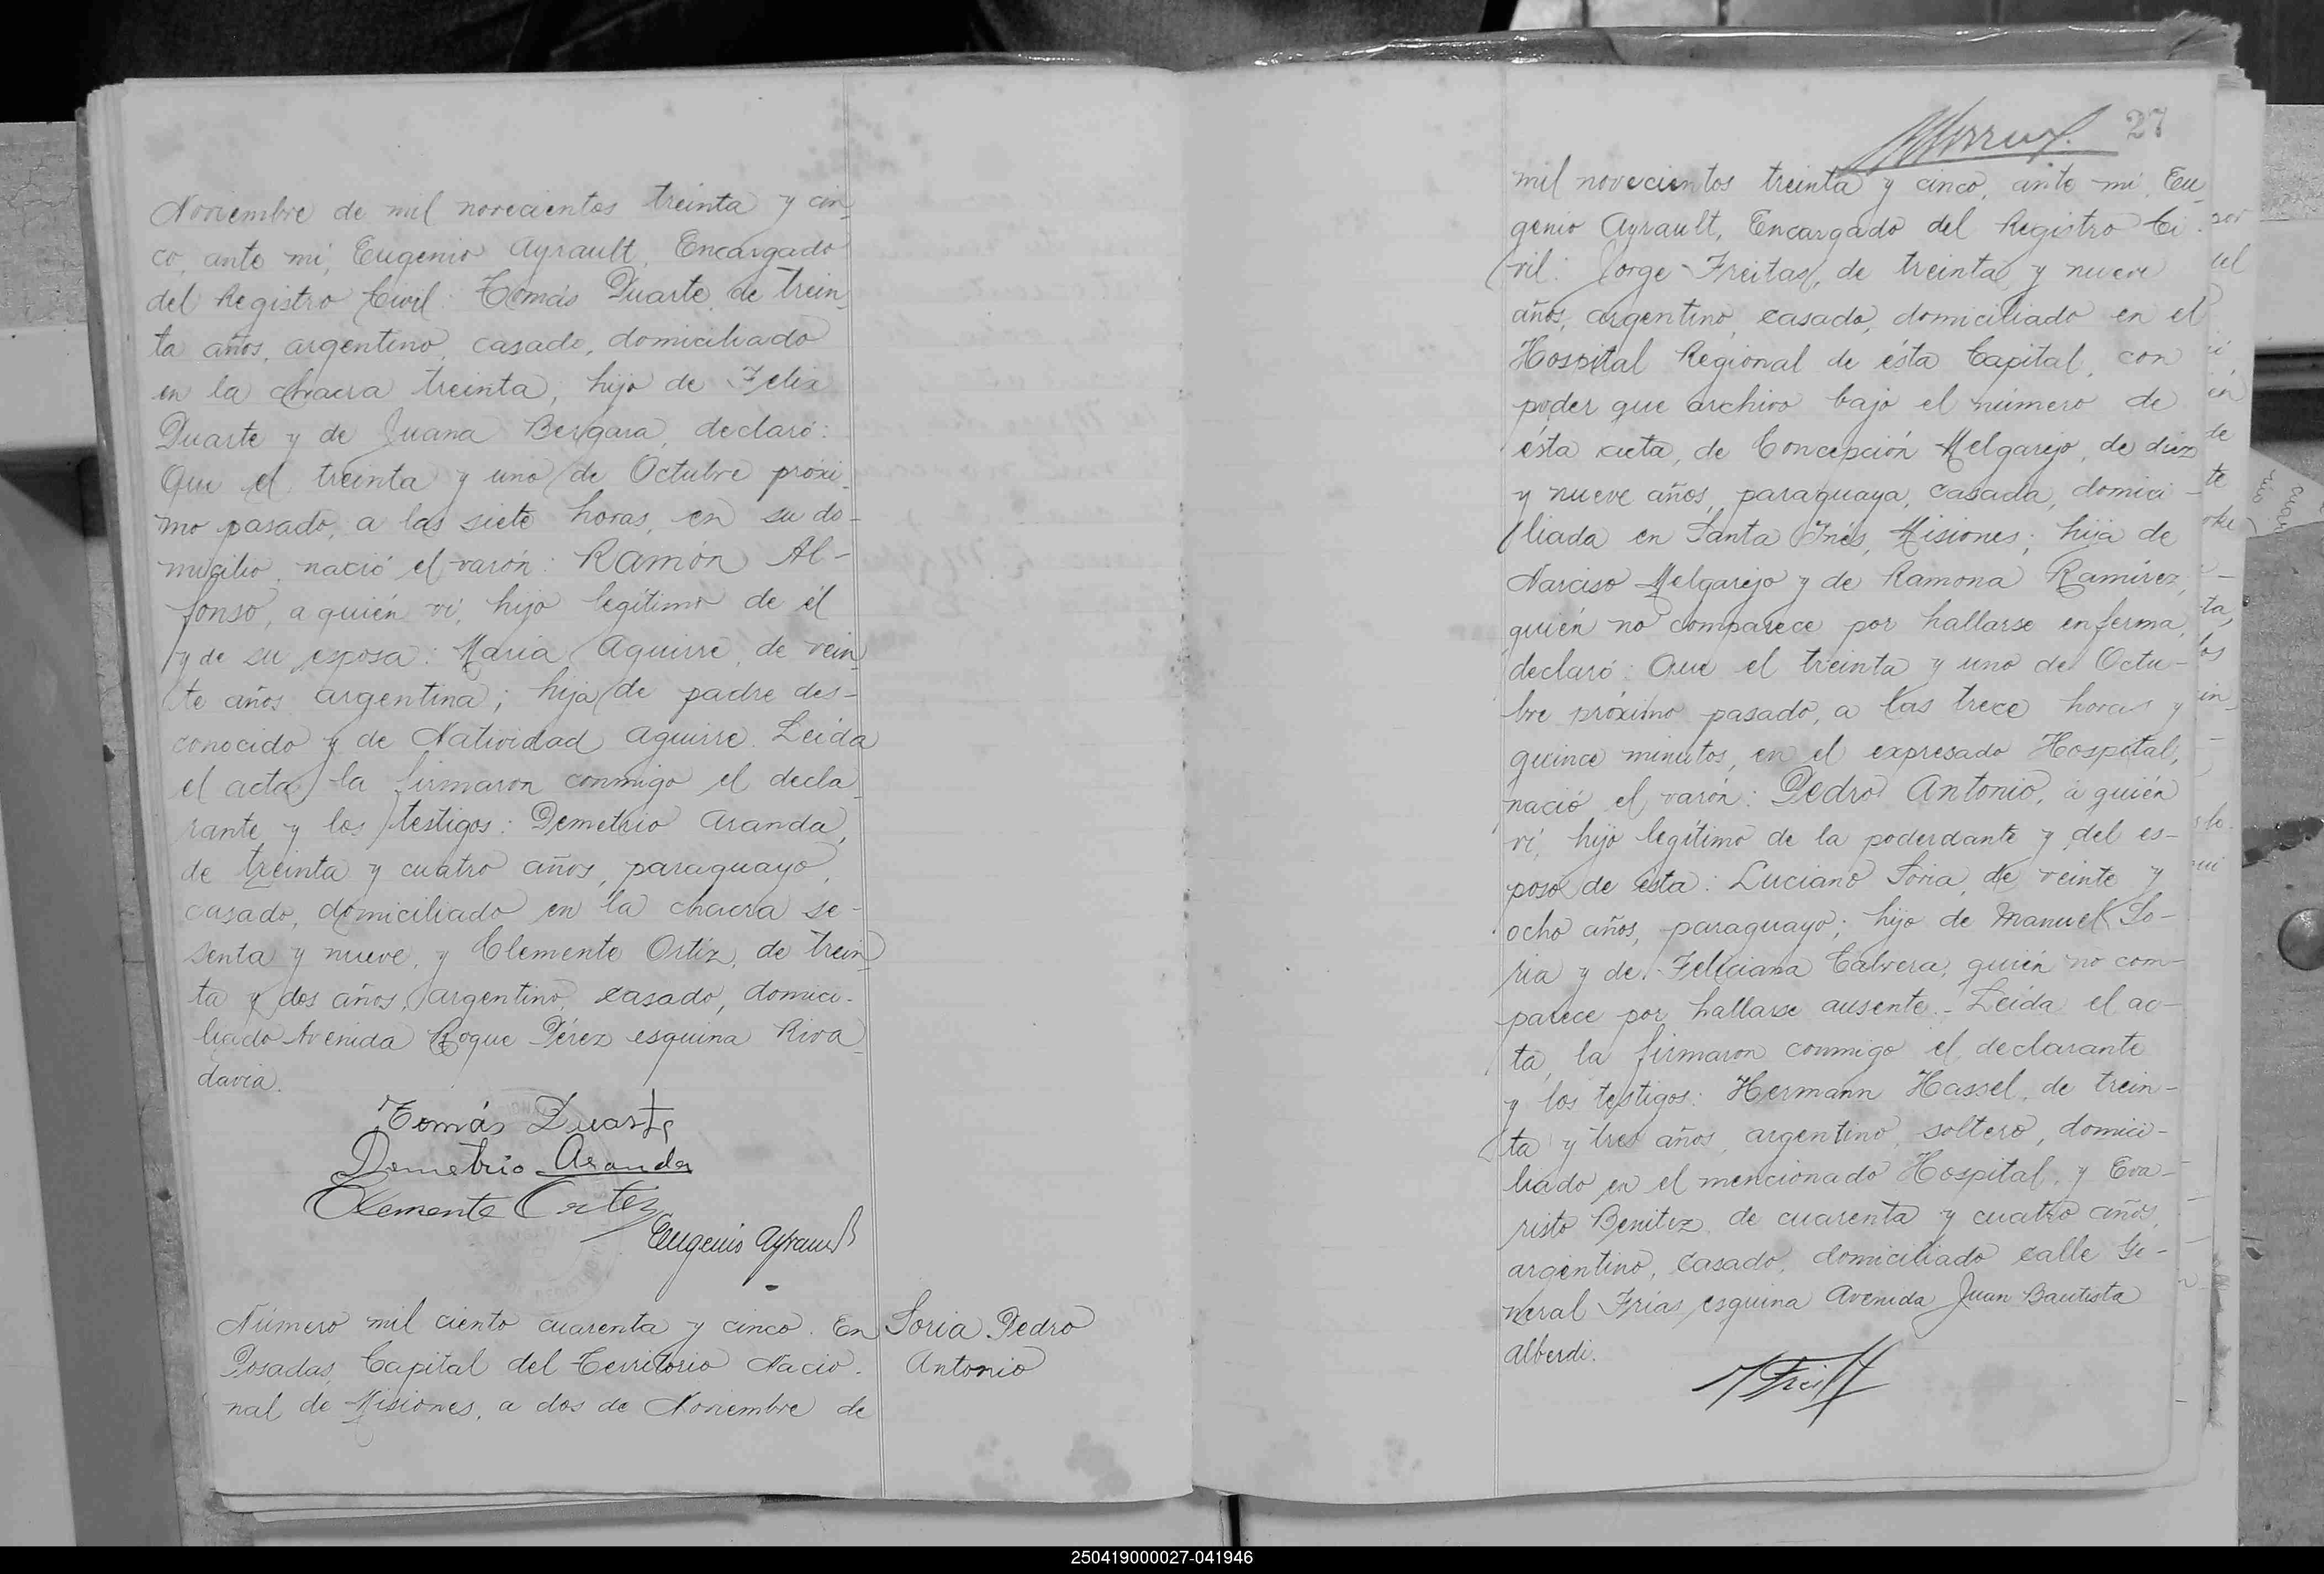 Noviembre de mil novecientos treinta y cin-
co, ante mí, Eugenio Ayrault, Encargado
del Registro Civil: Tomás Duarte, de trein-
ta años, argentino, casado, domiciliado
en la chacra treinta; hijo de Felix
Duarte y de Juana Bergara, declaró:
Que el treinta y uno de Octubre próxi-
mo pasado, a las siete horas, en su do-
micilio, nació el varón: Ramón Al-
fonso, a quién ví, hijo legítimo de él
y de su esposa: María Aguirre, de vein-
te años argentina; hija de padre des-
conocido y de Natividad Aguirre. Leída
el acta, la firmaron conmigo el decla-
rante y los testigos: Demetrio Aranda,
de treinta y cuatro años, paraguayo,
casado, domiciliado en la chacra se-
senta y nueve, y Clemente Ortiz, de trein-
ta y dos años, argentino, casado, domici-
liado Avenida Roque Pérez esquina Riva-
davia.
Tomás Duarte
Demetrio Aranda
Clemente Ortez
Eugenio Ayrault
Número mil ciento cuarenta y cinco. En
Posadas, Capital del Territorio Nacio-
nal de Misiones, a dos de Noviembre de
Soria Pedro
Antonio
27
mil novecientos treinta y cinco, ante mí, Eu-
genio Ayrault, Encargado del Registro Ci-
vil: Jorge Freitas, de treinta y nueve
años, argentino, casado, domiciliado en el
Hospital Regional de ésta Capital, con
poder que archivo bajo el número de
ésta acta, de Concepción Melgarejo, de diez
y nueve años, paraguaya, casada, domici-
liada en Santa Inés, Misiones; hija de
Narciso Melgarejo y de Ramona Ramírez,
quién no comparece por hallarse enferma,
declaró: Que el treinta y uno de Octu-
bre próximo pasado, a las trece horas y
quince minutos, en el expresado Hospital,
nació el varón: Pedro Antonio, a quién
ví, hijo legítimo de la poderdante y del es-
poso de ésta: Luciano Soria, de veinte y
ocho años, paraguayo; hijo de Manuel So-
ria y de Feliciana Calvera, quién no com-
parece por hallarse ausente.- Leída el ac-
ta, la firmaron conmigo el declarante
y los testigos: Hermann Hassel, de trein-
ta y tres años, argentino, soltero, domici-
liado en el mencionado Hospital, y Eva-
risto Benitez, de cuarenta y cuatro años,
argentino, casado, domiciliado calle Ge-
neral Frías esquina Avenida Juan Bautista
Alberdi.
250419000027-041946